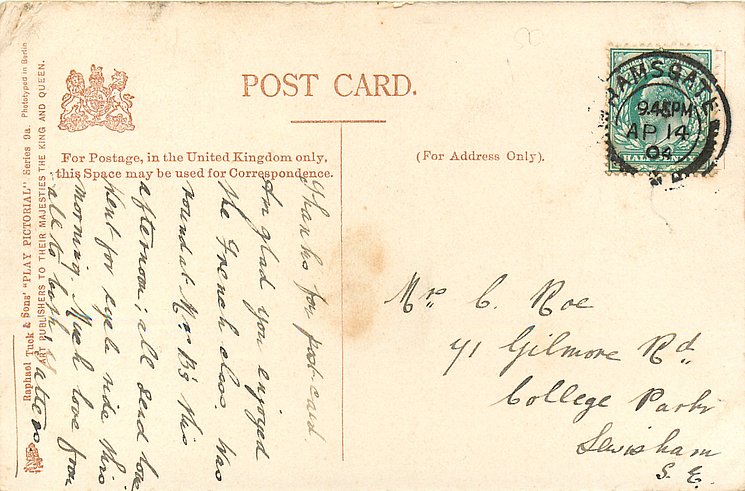 POST CARD.
For Postage, in the United Kingdom only,
this Space may be used for Correspondence.
(For Address Only).
RAMSGATE
9.45PM
AP 14
04
HALFPENNY
Thanks for post-card.
Am glad you enjoyed
the French class. Was
round at Mrs B's this
afternoon; all send love
Went for cycle ride this
morning. Much love from
all to both
Mrs C. Roe
71 Gilmore Rd
College Park
Lewisham
S.E.
Raphael Tuck & Sons' "PLAY PICTORIAL" Series 9a. Phototyped in Berlin
ART PUBLISHERS TO THEIR MAJESTIES THE KING AND QUEEN.